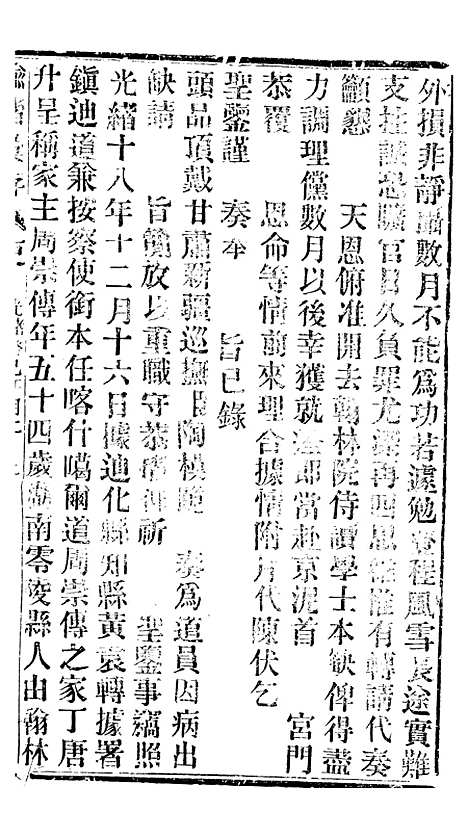 外損非靜攝數月不能為功若遽勉奔程風雪長途實難
支持誠恐曠官日久負罪尤深再四思維惟有轉請代奏
籲懇 天恩俯准開去翰林院侍讀學士本缺俾得盡
力調理儻數月以後幸獲就痊即當赴京泥首 宮門
恭覆 恩命等情前來理合據情附片代陳伏乞
聖鑒謹 奏奉 旨已錄
頭品頂戴甘肅新疆巡撫臣陶模跪 奏為道員因病出
缺請 旨簡放以重職守恭摺仰祈 聖鑒事竊照
光緒十八年十二月十六日據迪化縣知縣黃袁轉據署
鎮迪道兼按察使銜本任喀什噶爾道周崇傅之家丁唐
升呈稱家主周崇傅年五十四歲湖南零陵縣人由翰林